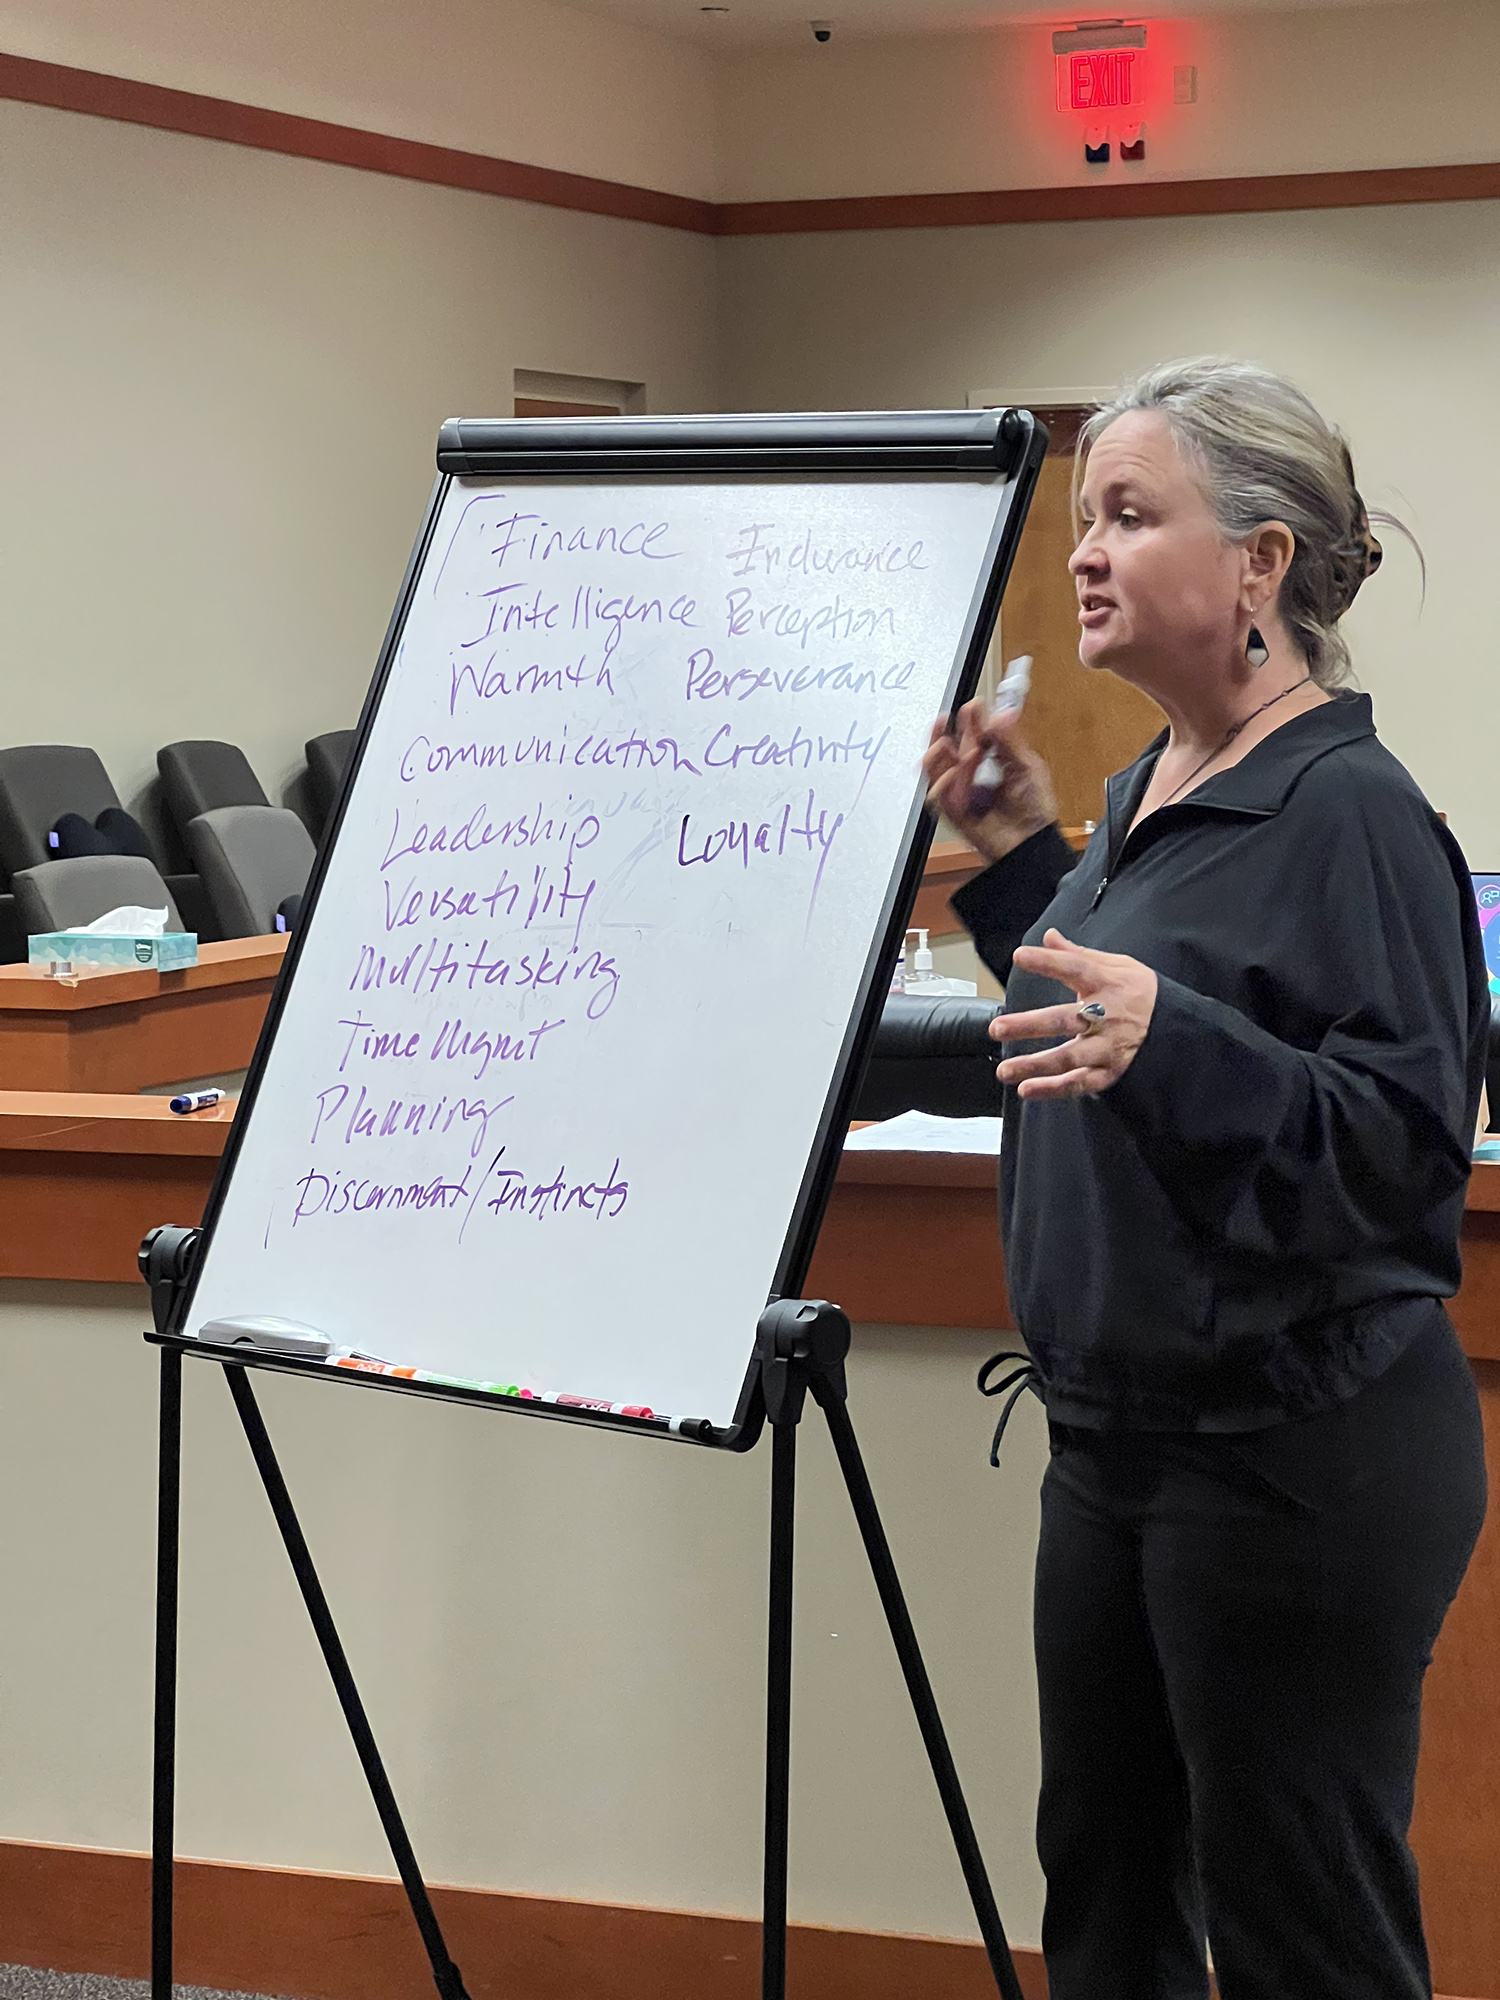 EXIT
Finance Indurance
Intelligence Perception
Warmth Perseverance
Communication Creativity
Leadership Loyalty
Versatility
Multitasking
Time Mgmt
Planning
Discernment/Instincts